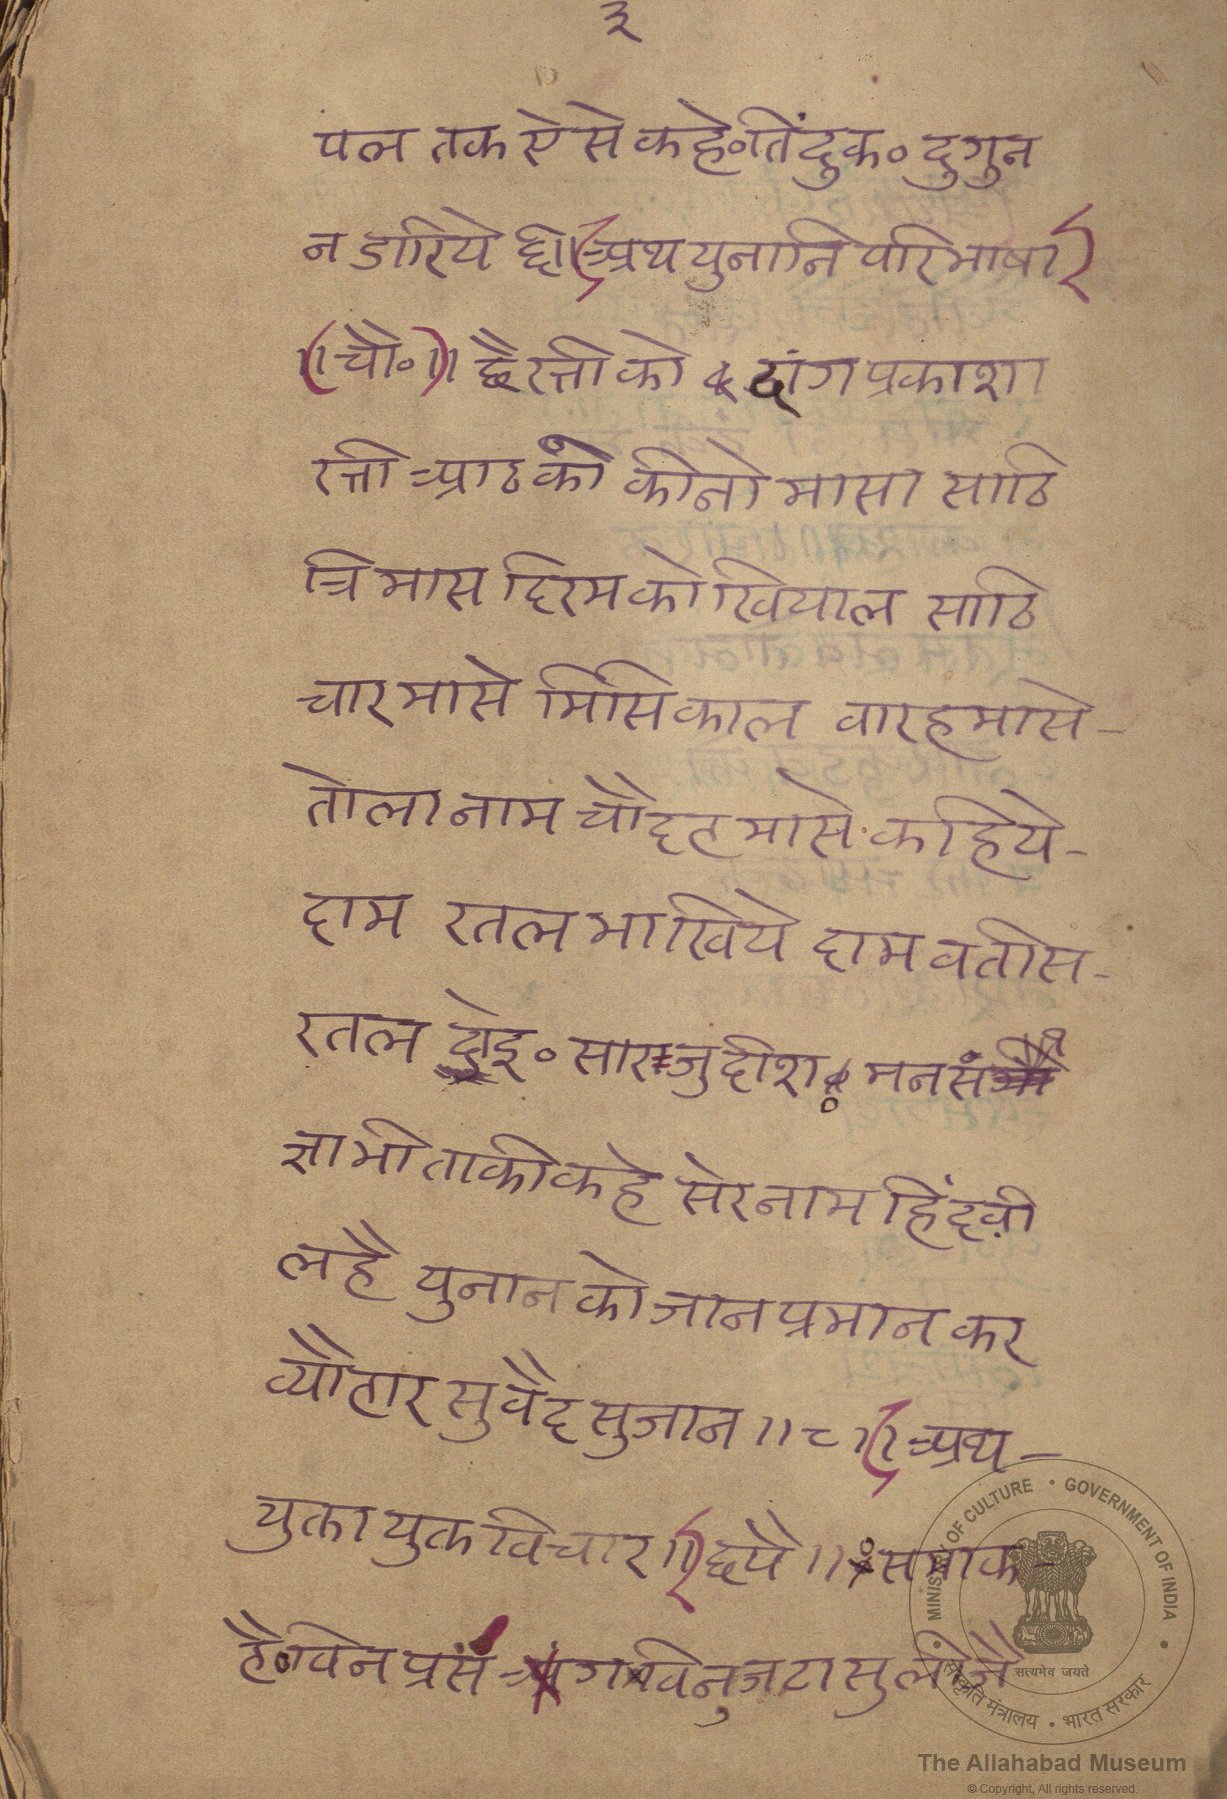 ३
पल तक ऐसे कहे॰ तिंदुक॰ दुगुन
न डारिये ही॥ अथ युनानि परिभाषा
॥चौ॰॥ छै रत्ती को दांग प्रकाशा
रत्ती आठ को कीनो मासा साढि
त्रिमास दिरम को खियाल साढि
चारमासे मिसिकाल वारहमासे-
तोला नाम चौदह मासे कहिये-
दाम रतल भाखिये दाम वतीस-
रतल होइ॰ सार जुदीश मन सं
ज्ञा भी ताकी कहे सेर नाम हिंदवी
लहै युनान को जान प्रमान कर
व्यौहार सु वैद सुजान ॥८॥ अथ-
युक्तायुक्त विचार॥ छपै॥ स
है॰ विन प्रसं ग विनु जटा सु लीजै
MINISTRY OF CULTURE • GOVERNMENT OF INDIA
सत्यमेव जयते
संस्कृति मंत्रालय • भारत सरकार
The Allahabad Museum
© Copyright, All rights reserved.